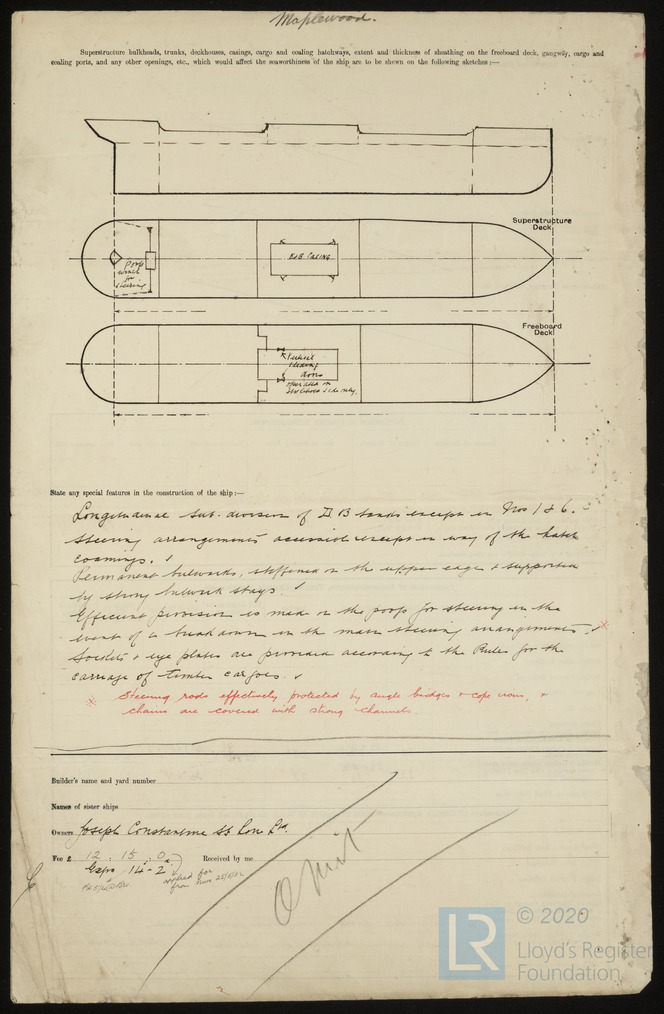 Maplewood.
Superstructure bulkheads, trunks, deckhouses, casings, cargo and coaling hatchways, extent and thickness of sheathing on the freeboard deck, gangway, cargo and
coaling ports, and any other openings, etc., which would affect the seaworthiness of the ship are to be shewn on the following sketches:—
Superstructure
Deck
Poop
winch
for
steering
E&B CASING.
Freeboard
Deck
doors
State any special features in the construction of the ship:—
Longitudinal sub-division of D B tanks except in Nos 1 & 6.
Steering arrangements accessible except in way of the hatch
coamings.
Permanent bulwarks, stiffened on the upper edge & supported
by strong bulwark stays.
Efficient provision is made on the poop for steering in the
event of a breakdown in the main steering arrangements.
Sockets & eye plates are provided according to the Rules for the
carriage of timber cargoes.
Steering rods effectively protected by angle bridges & cope iron, &
chains are covered with strong channels.
Builder's name and yard number
Names of sister ships
Owners Joseph Constantine SS Line Ltd.
Fee £ 12 . 15 . 0 Received by me
Exps 14-2
applied for
Omit
LR
© 2020
Lloyd's Register
Foundation